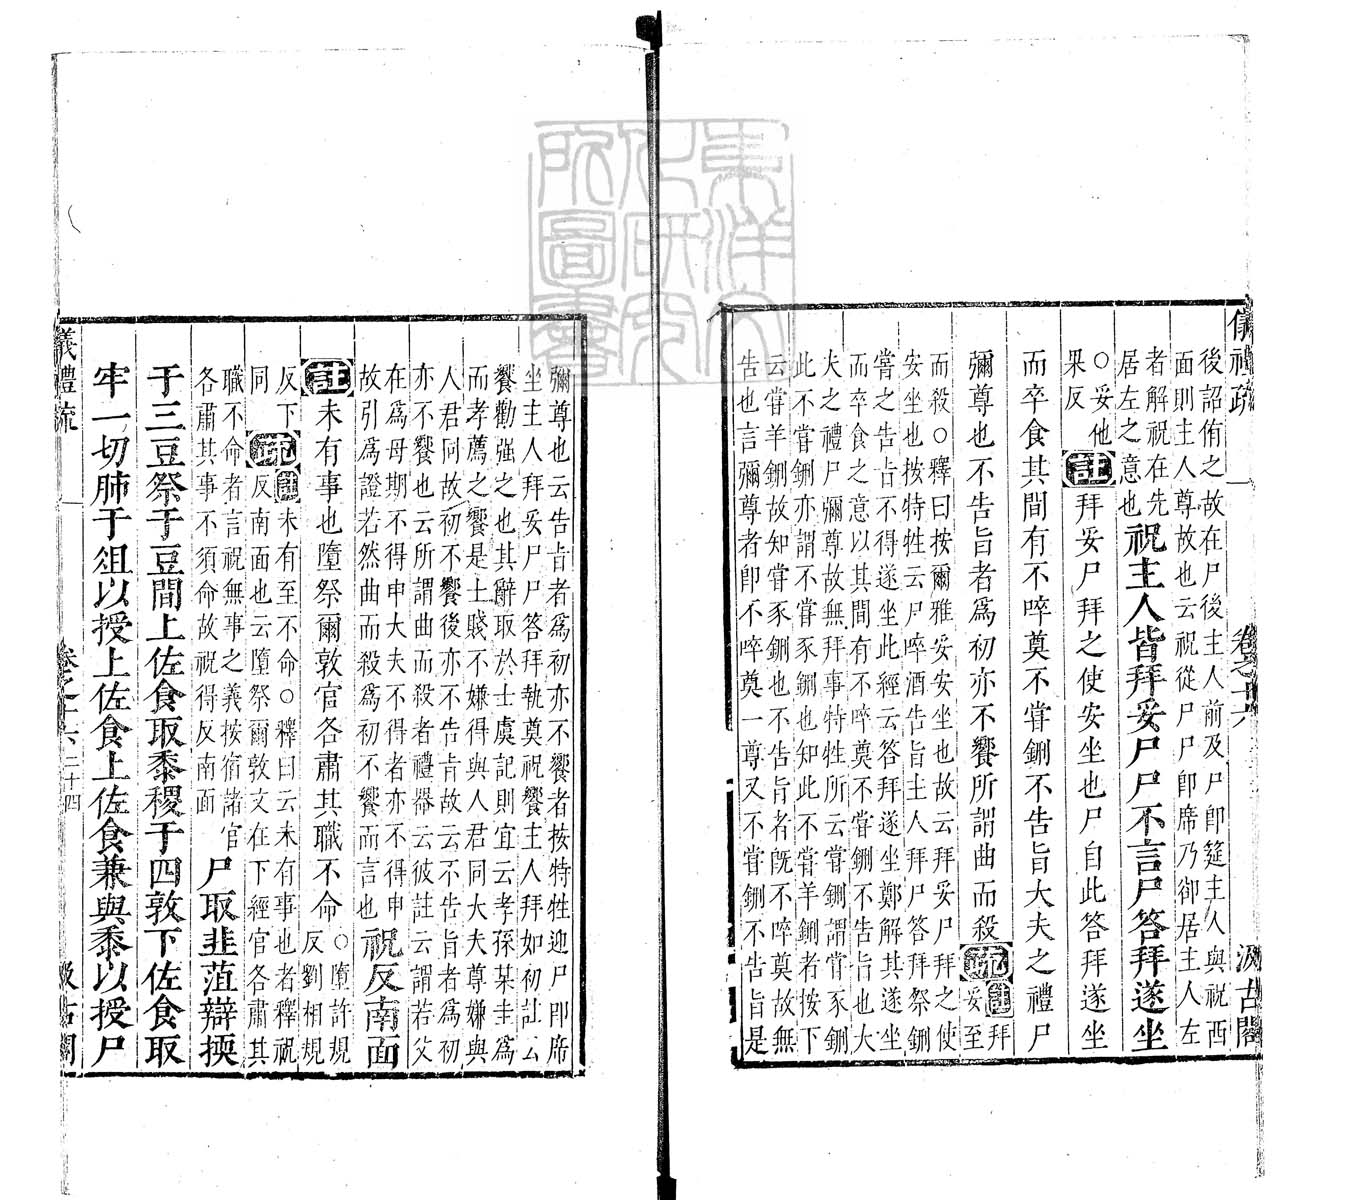 儀禮疏
卷之十六
汲古閣
後詔侑之故在尸後主人前及尸卽筵主人與祝西
面則主人尊故也云祝從尸尸卽席乃卻居主人左
者解祝在先
居左之意也
祝主人皆拜妥尸尸不言尸答拜遂坐
○妥他
果反
註拜妥尸拜之使安坐也尸自此答拜遂坐
而卒食其間有不啐奠不嘗鉶不告旨大夫之禮尸
彌尊也不告旨者爲初亦不饗所謂曲而殺
疏註拜
妥至
而殺○釋曰按爾雅妥安坐也故云拜妥尸拜之使
安坐也按特牲云尸啐酒告旨主人拜尸答拜祭鉶
嘗之告旨不得遂坐此經云答拜遂坐鄭解其遂坐
而卒食之意以其間有不啐奠不嘗鉶不告旨也大
夫之禮尸彌尊故無拜事特牲所云嘗鉶謂嘗豕鉶
此不嘗鉶亦謂不嘗豕鉶也知此不嘗羊鉶者按下
云嘗羊鉶故知嘗豕鉶也不告旨者旣不啐奠故無
告也言彌尊者卽不啐奠一尊又不嘗鉶不告旨是
彌尊也云告旨者爲初亦不饗者按特牲迎尸卽席
坐主人拜妥尸尸答拜執奠祝饗主人拜如初註云
饗勸强之也其辭取於士虞記則宜云孝孫某圭爲
而孝薦之饗是士賤不嫌得與人君同大夫尊嫌與
人君同故初不饗後亦不告旨故云不告旨者爲初
亦不饗也云所謂曲而殺者禮器云彼註云謂若父
在爲母期不得申大夫不得者亦不得申
故引爲證若然曲而殺爲初不饗而言也
祝反南面
註未有事也墮祭爾敦官各肅其職不命
○墮許規
反劉相規
反下
同
疏註未有至不命○釋曰云未有事也者釋祝
反南面也云墮祭爾敦文在下經官各肅其
職不命者言祝無事之義按宿諸官
各肅其事不須命故祝得反南面
尸取韭菹辯擩
于三豆祭于豆間上佐食取黍稷于四敦下佐食取
牢一切肺于俎以授上佐食上佐食兼與黍以授尸
儀禮疏
卷之十六
二十四
汲古閣